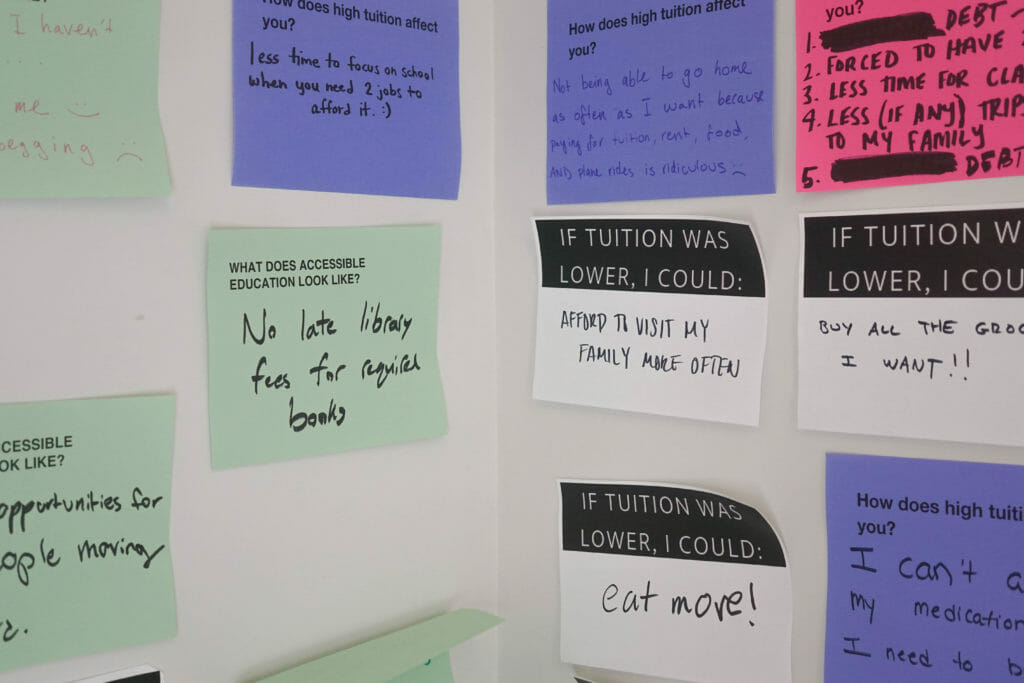 I haven't
. . . .
me
begging
How does high tuition affect
you?
less time to focus on school
when you need 2 jobs to
afford it. :)
How does high tuition affect
you?
Not being able to go home
as often as I want because
paying for tuition, rent, food,
AND plane rides is ridiculous
you?
1. DEBT
2. FORCED TO HAVE
3. LESS TIME FOR
4. LESS (IF ANY) TRIPS
TO MY FAMILY
5. DEBT
WHAT DOES ACCESSIBLE
EDUCATION LOOK LIKE?
No late library
fees for required
books
IF TUITION WAS
LOWER, I COULD:
AFFORD TO VISIT MY
FAMILY MORE OFTEN
IF TUITION
LOWER, I
BUY ALL THE
I WANT!!
ACCESSIBLE
LOOK LIKE?
opportunities for
people moving
IF TUITION WAS
LOWER, I COULD:
eat more!
How does high
you?
I can't
my medication
I need to